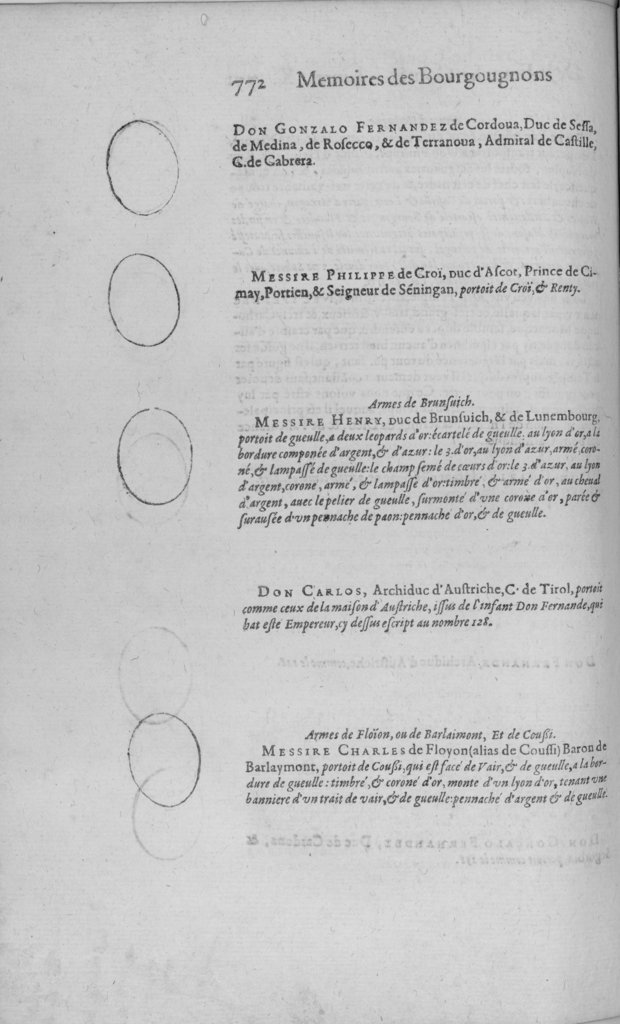 772 Memoires des Bourgougnons
DON GONZALO FERNANDEZ de Cordoua, Duc de Seſſa,
de Medina, de Roſecco, & de Terranoua, Admiral de Caſtille,
C. de Cabrera.
MESSIRE PHILIPPE de Croï, Duc d'Aſcot, Prince de Ci-
may, Portien, & Seigneur de Séningan, portoit de Croï, & Renty.
Armes de Brunſuich.
MESSIRE HENRY, Duc de Brunſuich, & de Lunembourg,
portoit de gueulle, a deux leopards d'or: écartelé de gueulle. au lyon d'or, a la
bordure componée d'argent, & d'azur: le 3. d'or, au lyon d'azur, armé, coro-
né, & lampaſſé de gueulle: le champ ſemé de cœurs d'or: le 3. d'azur, au lyon
d'argent, coroné, armé, & lampaſſé d'or: timbré, & armé d'or, au cheual
d'argent, auec le pelier de gueulle, ſurmonté d'vne corone d'or, parée &
ſurauſée d'vn pennache de paon: pennaché d'or, & de gueulle.
DON CARLOS, Archiduc d'Auſtriche, C. de Tirol, portoit
comme ceux de la maiſon d'Auſtriche, iſſus de l'infant Don Fernande, qui
hat eſté Empereur, cy deſſus eſcript au nombre 128.
Armes de Floïon, ou de Barlaimont, Et de Couſſi.
MESSIRE CHARLES de Floyon (alias de Couſſi) Baron de
Barlaymont, portoit de Couſſi, qui eſt facé de Vair, & de gueulle, a la bor-
dure de gueulle: timbré, & coroné d'or, monté d'vn lyon d'or, tenant vne
banniere d'vn trait de vair, & de gueulle: pennaché d'argent & de gueulle.